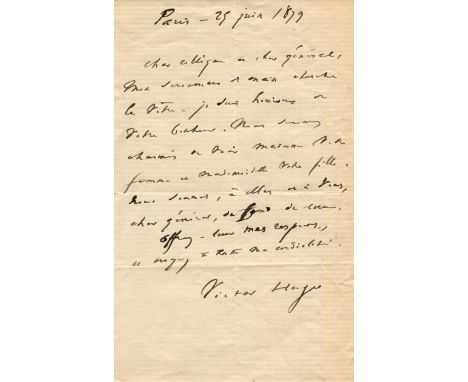 Paris - 25 juin 1879
cher collègue et cher général,
ma
le vôtre - je suis heureux de
votre bonheur. Nous serons
charmés de voir madame votre
femme et mademoiselle votre fille.
Nous sommes, à elles et à vous,
cher général, du fond du cœur.
offrez-leur mes respects,
et croyez à toute ma cordialité.
Victor Hugo